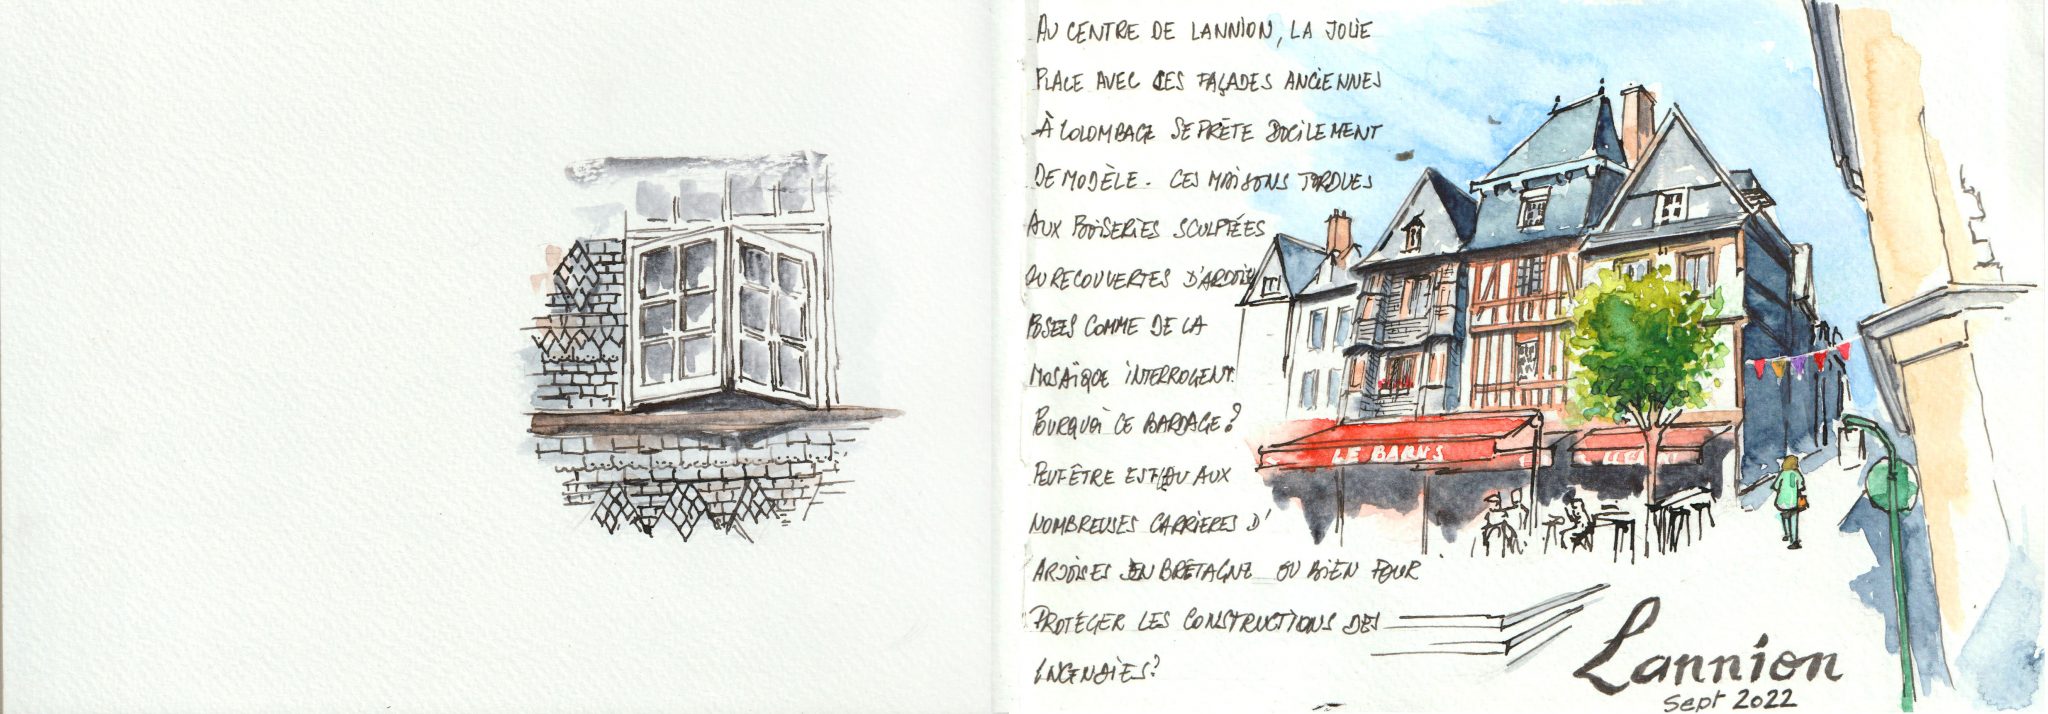 AU CENTRE DE LANNION, LA JOLIE
PLACE AVEC CES FAÇADES ANCIENNES
À COLOMBAGE SE PRÊTE DOCILEMENT
DE MODÈLE. CES MAISONS TORDUES
AUX BOISERIES SCULPTÉES
OU RECOUVERTES D'ARDOISE
POSÉES COMME DE LA
MOSAÏQUE INTERROGENT.
POURQUOI CE BARDAGE?
PEUT ÊTRE EST AUX
NOMBREUSES CARRIÈRES D'
ARDOISES EN BRETAGNE OU BIEN POUR
PROTÉGER LES CONSTRUCTIONS DES
INCENDIES?
LE BARNS
Lannion
Sept 2022